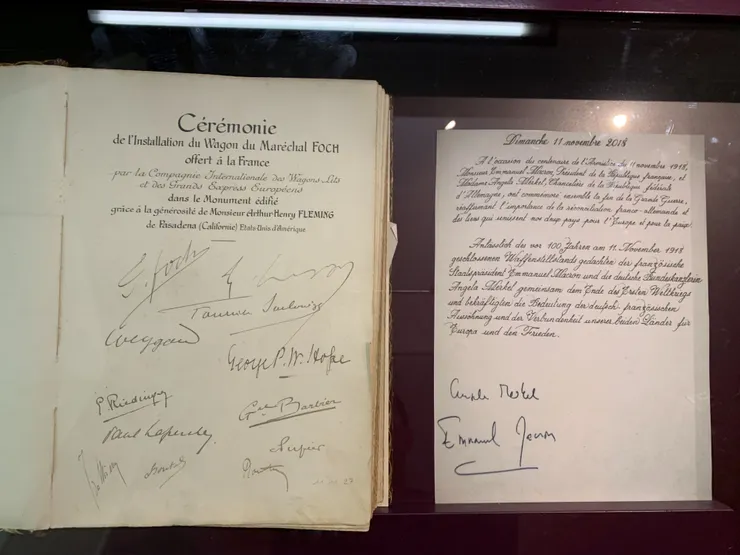 Cérémonie
de l'Installation du Wagon du Maréchal FOCH
offert à la France
par la Compagnie Internationale des Wagons Lits
et des Grands Express Européens
dans le Monument édifié
grâce à la générosité de Monsieur Arthur-Henry FLEMING
de Pasadena (Californie) Etats-Unis d'Amérique
Weygand
George P. W. Hope
Gal Barbier
Dimanche 11 novembre 2018
A l'occasion du centenaire de l'Armistice du 11 novembre 1918,
Monsieur Emmanuel Macron, Président de la République française, et
Madame Angela Merkel, Chancelière de la République fédérale
d'Allemagne, ont commémoré ensemble la fin de la Grande Guerre,
réaffirmant l'importance de la réconciliation franco-allemande et
des liens qui unissent nos deux pays pour l'Europe et pour la paix.
Anlässlich des vor 100 Jahren am 11. November 1918
geschlossenen Waffenstillstands gedachten der französische
Staatspräsident Emmanuel Macron und die deutsche Bundeskanzlerin
Angela Merkel gemeinsam dem Ende des Ersten Weltkriegs
und bekräftigten die Bedeutung der deutsch-französischen
Aussöhnung und der Verbundenheit unserer beiden Länder für
Europa und den Frieden.
Angela Merkel
Emmanuel Macron